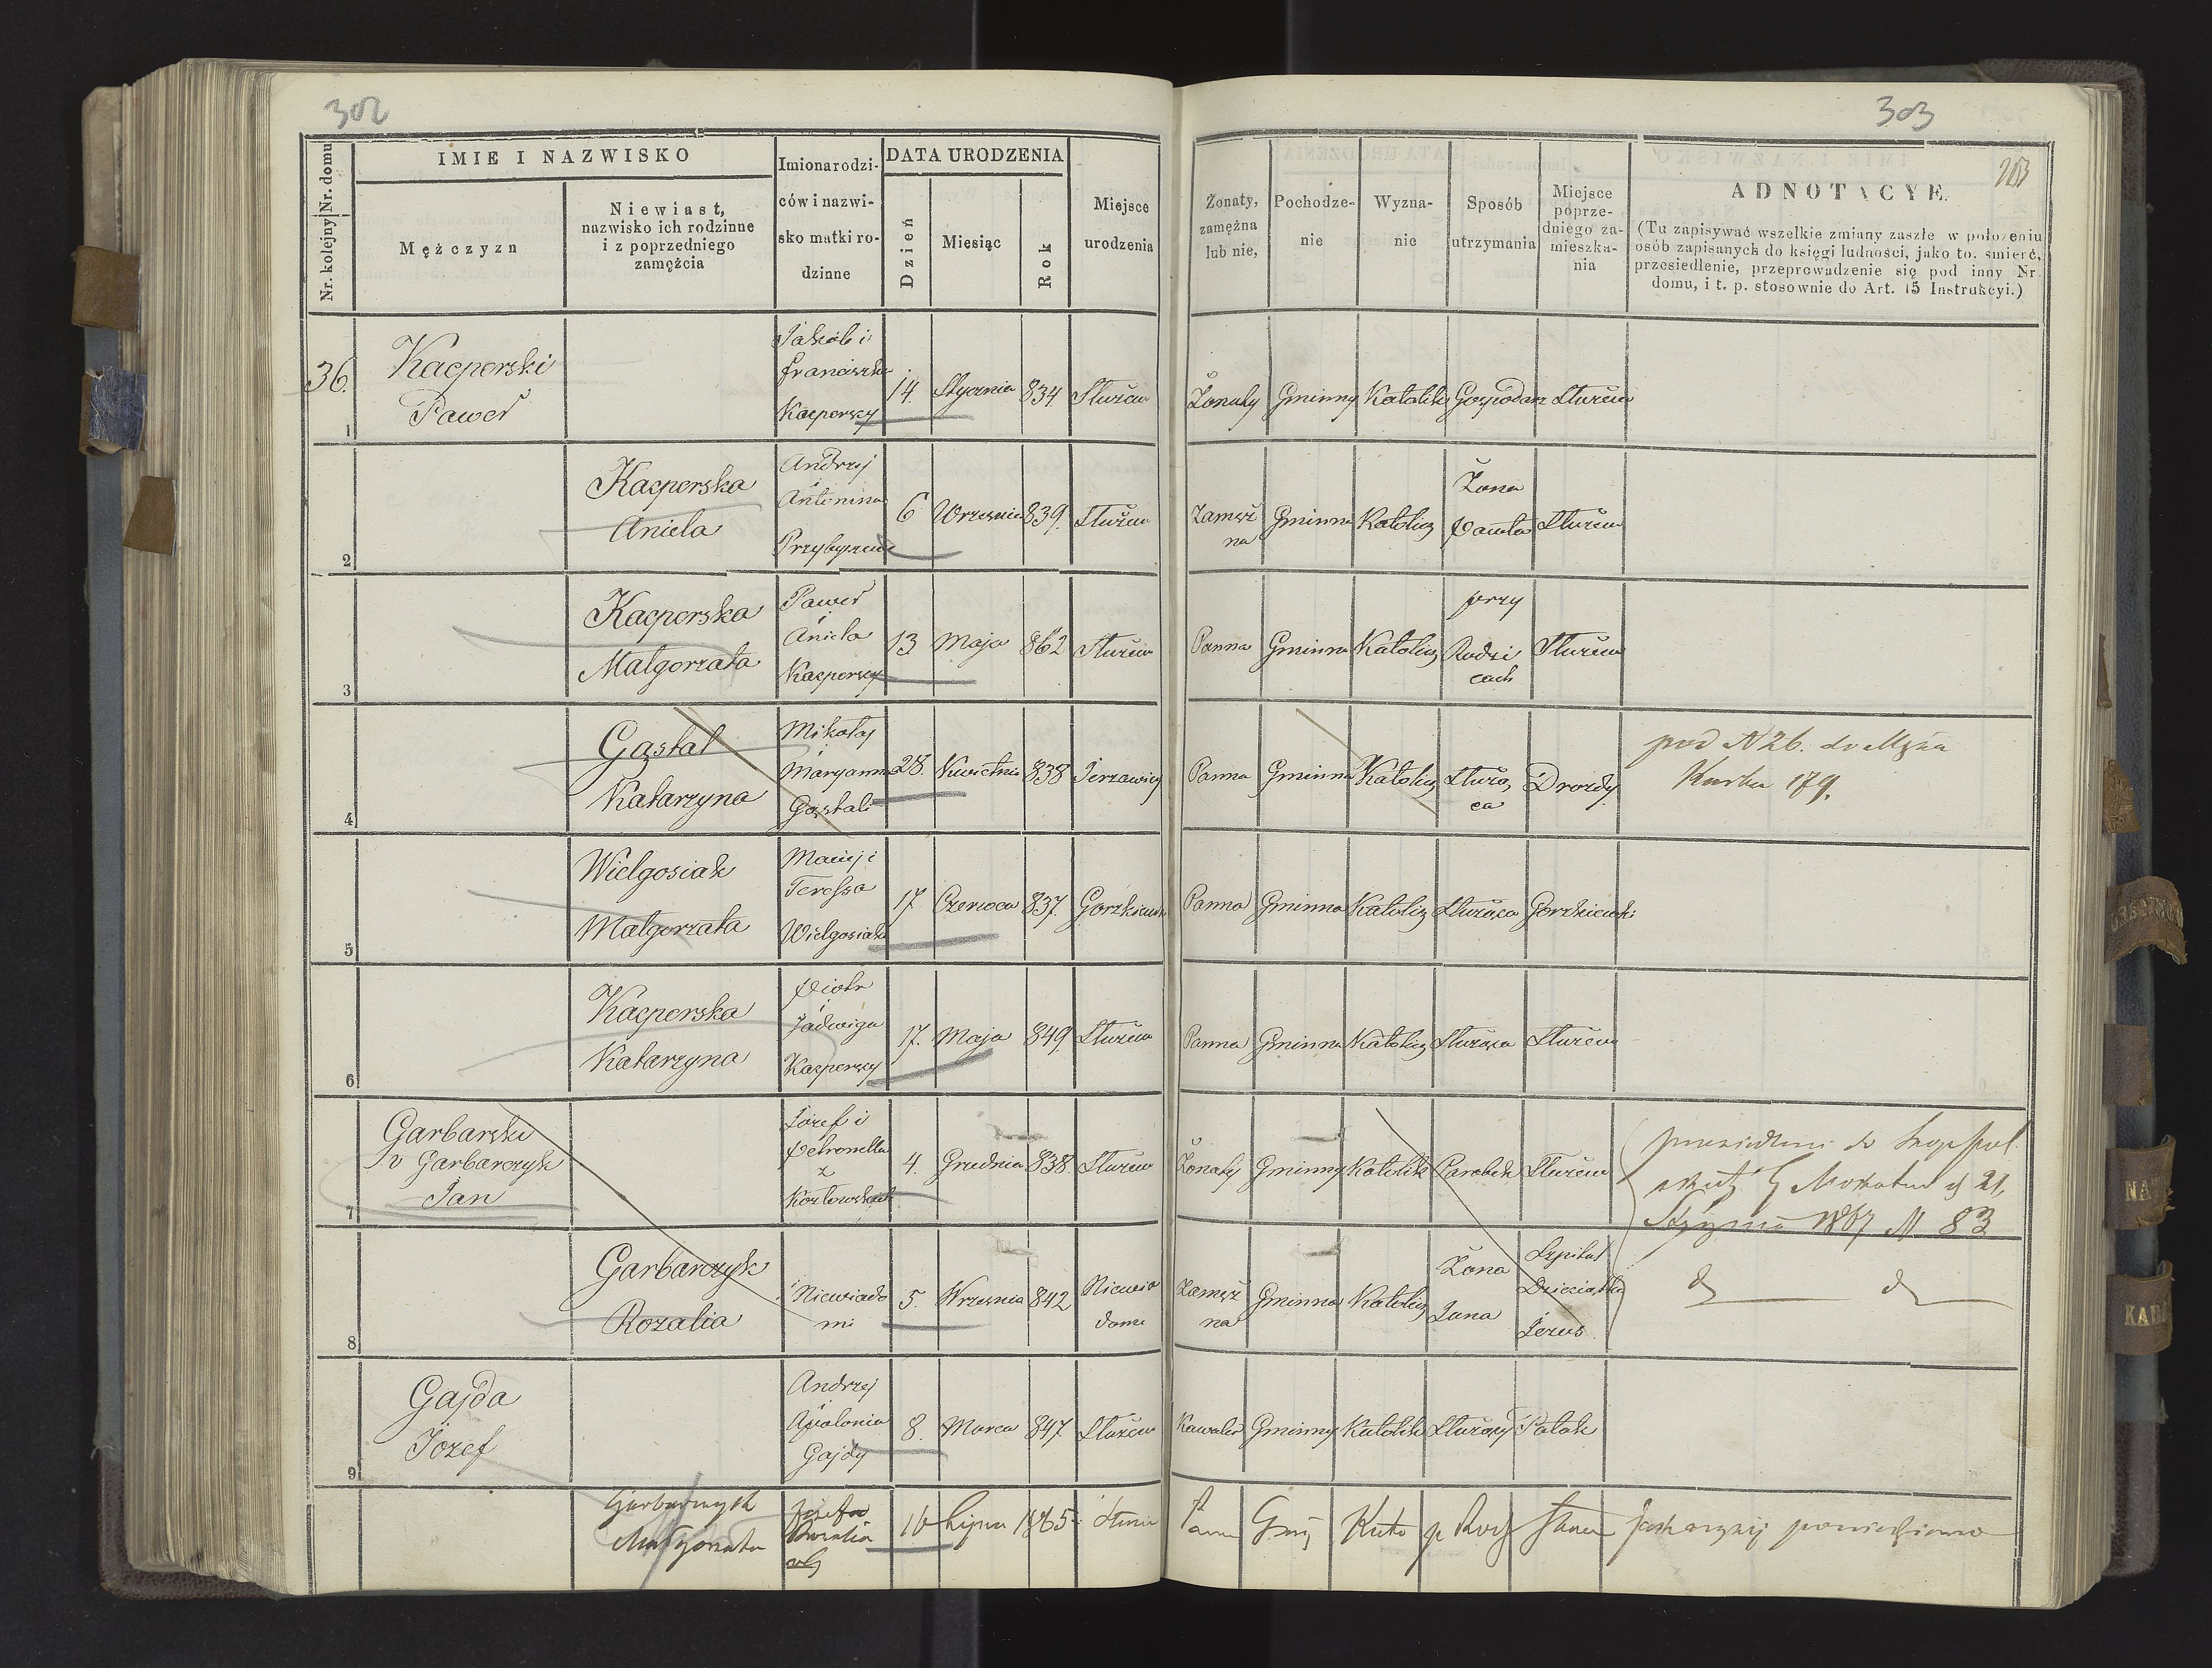 302
303
203
Nr. kolejny Nr. domu
IMIE I NAZWISKO
Mężczyzn
Niewiast,
nazwisko ich rodzinne
i z poprzedniego
zamężcia
Imiona rodzi-
ców i nazwi-
sko matki ro-
dzinne
DATA URODZENIA
Dzień
Miesiąc
Rok
Miejsce
urodzenia
Żonaty,
zamężna
lub nie,
Pochodze-
nie
Wyzna-
nie
Sposób
utrzymania
Miejsce
poprze-
dniego za-
mieszka-
nia
ADNOTACYE.
(Tu zapisywać wszelkie zmiany zaszłe w położeniu
osób zapisanych do księgi ludności, jako to. śmierć,
przesiedlenie, przeprowadzenie się pod inny Nr
domu, i t. p. stosownie do Art. 15 Instrukcyi.)
36.
1
Kacperski
Paweł
Jakób i
Franciszka
Kacperscy
14. Stycznia 834 Służew
Żonaty Gminny Katolik Gospodarz Służew
2
Kacperska
Aniela
Andrzej
i
Antonina
6 Wrzesnia 839. Służew
Zamęż
na
Gminna Katolicz
Żona
Pawła
Służew
3
Kacperska
Małgorzata
Paweł
i
Aniela
Kacperscy
13 Maja 862 Służew
Panna Gminna Katolicz
przy
Rodzi
cach
Służew
4
Gąstal
Katarzyna
Mikołaj
i
Maryanna
Gąstali
28. Kwietnia 838
Panna Gminna Katolicz
Służą
ca
Drozdy
pod N 26.
179.
5
Wielgosiak
Małgorzata
Maciej i
Teressa
Wielgosiak
17. Czerwca 837.
Panna Gminna Katolicz Służąca
6
Kacperska
Katarzyna
Piotr
i
Jadwiga
Kacperscy
17. Maja 849. Służew
Panna Gminna Katolicz Służąca Służew
7
Garbarski
v Garbarczyk
Jan
Józef i
Petronella
z
Kozłowskich
4. Grudnia 838 Służew
Żonaty Gminny Katolik Parobek Służew
21,
1867 N 83
8
Garbarczyk
Rozalia
Niewiado
mi
5. Wrzesnia 842
Niewia
dome
Zamęż
na
Gminna Katolicz
Żona
Jana
Szpital
Dzieciątka
Jezus
9
Gajda
Józef
Andrzej
i
Apolonia
Gajdy
8. Marca 847. Służew
Kawaler Gminny Katolik Służący Potok
Garbarczyk
Małgorzata
Rozalia
10 Lipca 1865